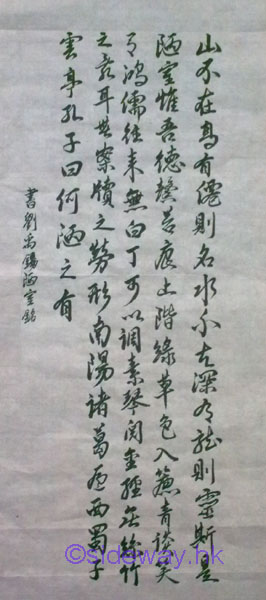 山不在高有僊則名水不在深有龍則靈斯是
陋室惟吾德馨苔痕上階綠草色入簾青談笑
有鴻儒往來無白丁可以調素琴閱金經無絲竹
之亂耳無案牘之勞形南陽諸葛廬西蜀子
雲亭孔子曰何陋之有
書劉禹錫陋室銘
©sideway.hk